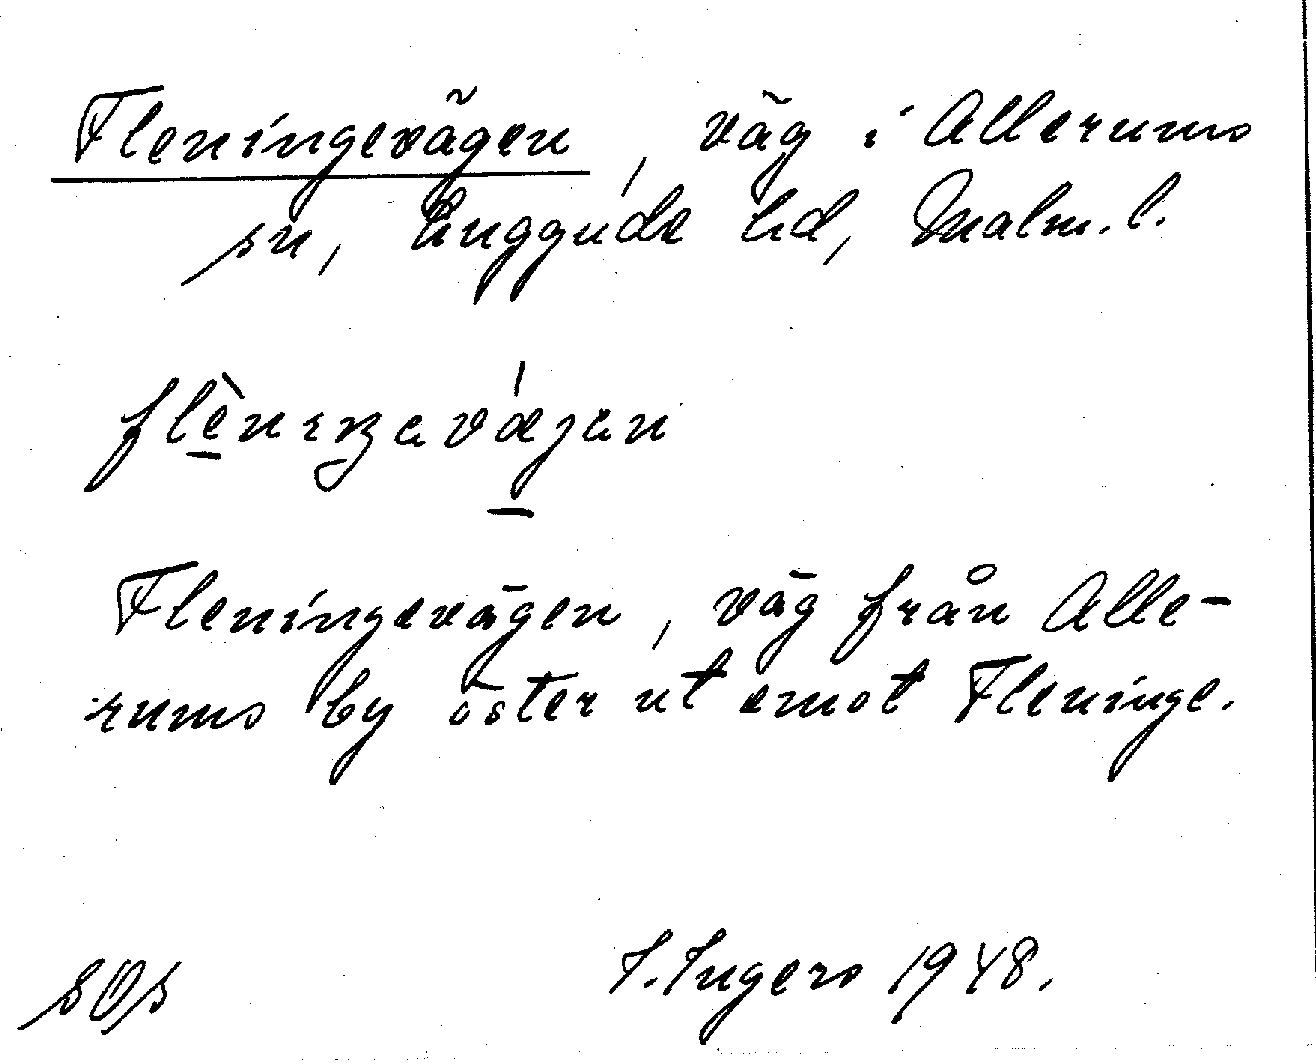 Fleningevägen, väg i Allerums
sn, Luggude hd, Malm. l.
flènıŋavǽgan
Fleningevägen, väg från Alle-
rums by öster ut emot Fleninge.
I. Ingers 1948.